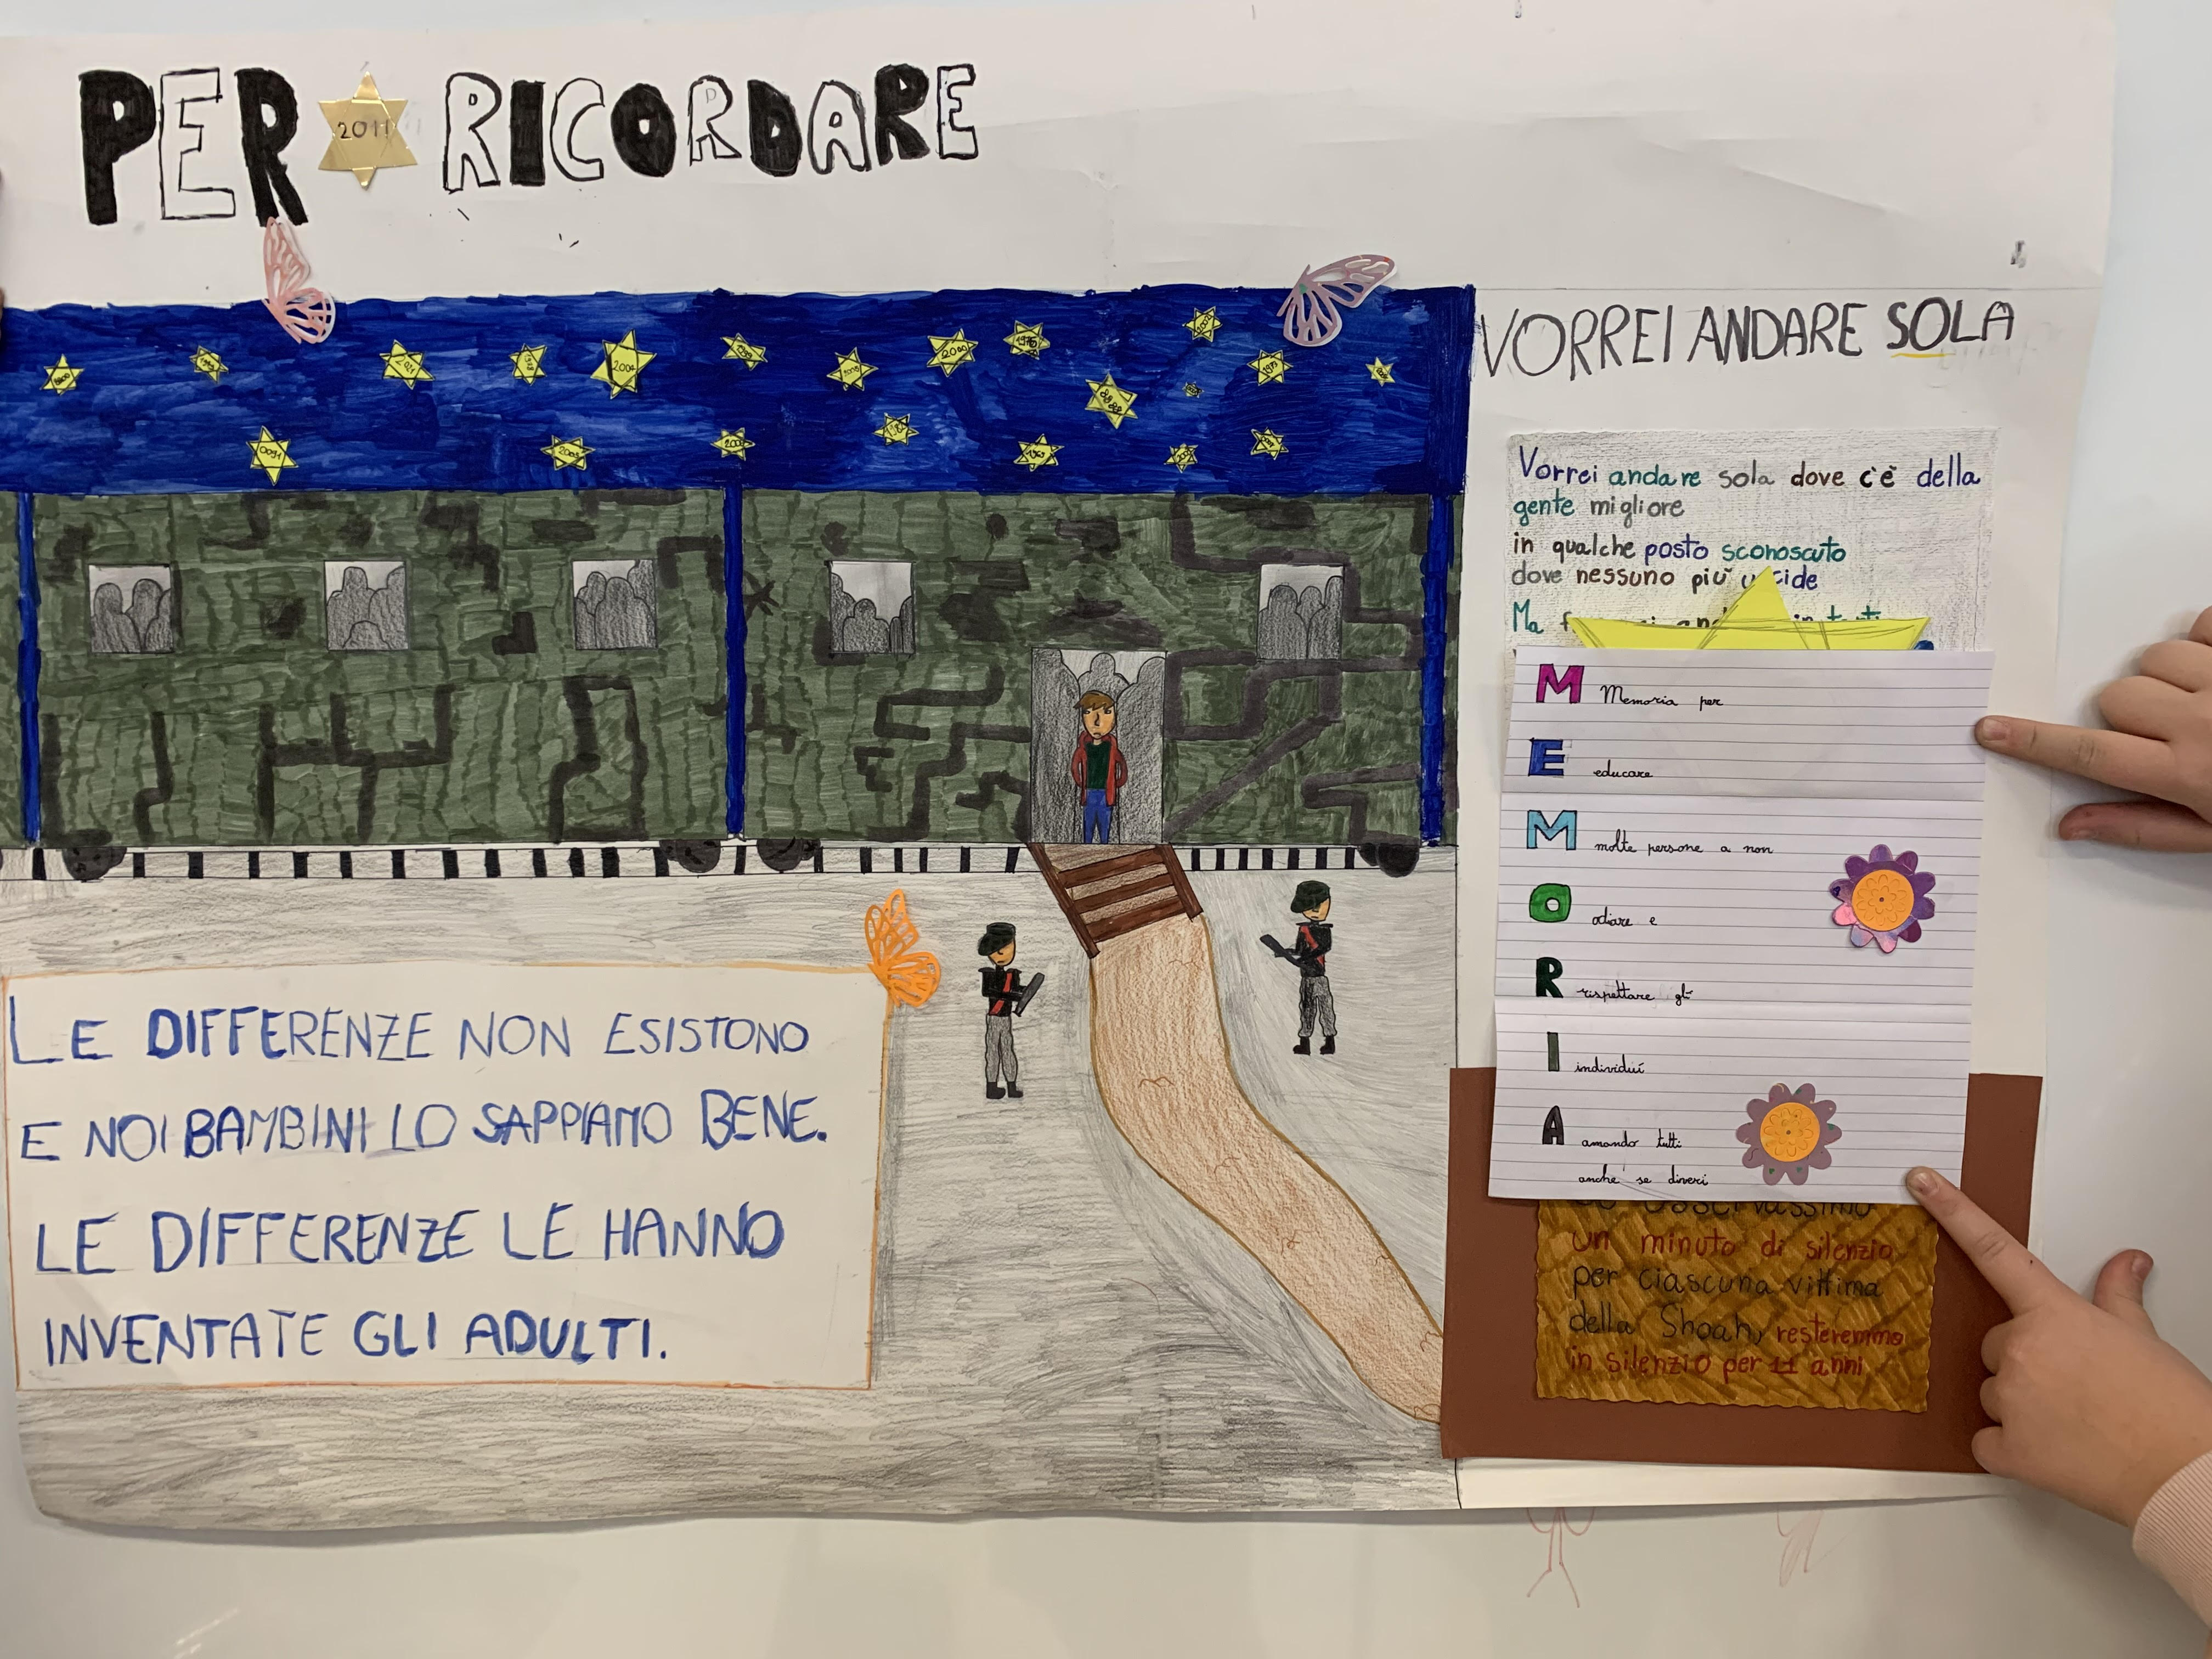 PER 2011 RICORDARE
VORREI ANDARE SOLA
Vorrei andare sola dove c'è della
gente migliore
in qualche posto sconosciuto
dove nessuno più uccide
Ma
M Memoria per
E educare
M molte persone a non
O odiare e
R rispettare gli
I individui
A amando tutti
anche se diversi
un minuto di silenzio
per ciascuna vittima
della Shoah, resteremmo
in silenzio per 11 anni
LE DIFFERENZE NON ESISTONO
E NOI BAMBINI LO SAPPIAMO BENE.
LE DIFFERENZE LE HANNO
INVENTATE GLI ADULTI.
2004
2000